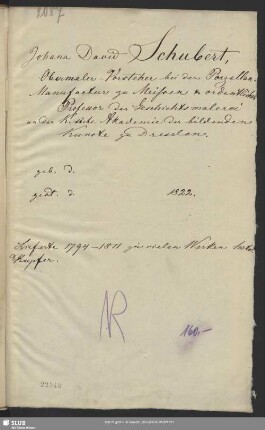 2087
Johann David Schubert,
Obermaler Vorsteher bei der Porzellan-
Manufactur zu Meissen & ordentlicher
Professor der Geschichtsmalerei
an der K. sächs. Akademie der bildenden
Künste zu Dresden.
geb. d.
gest. d. 1822.
Lieferte 1794–1811 zu vielen Werken
Kupfer.
NR
160.-
22540
SLUB